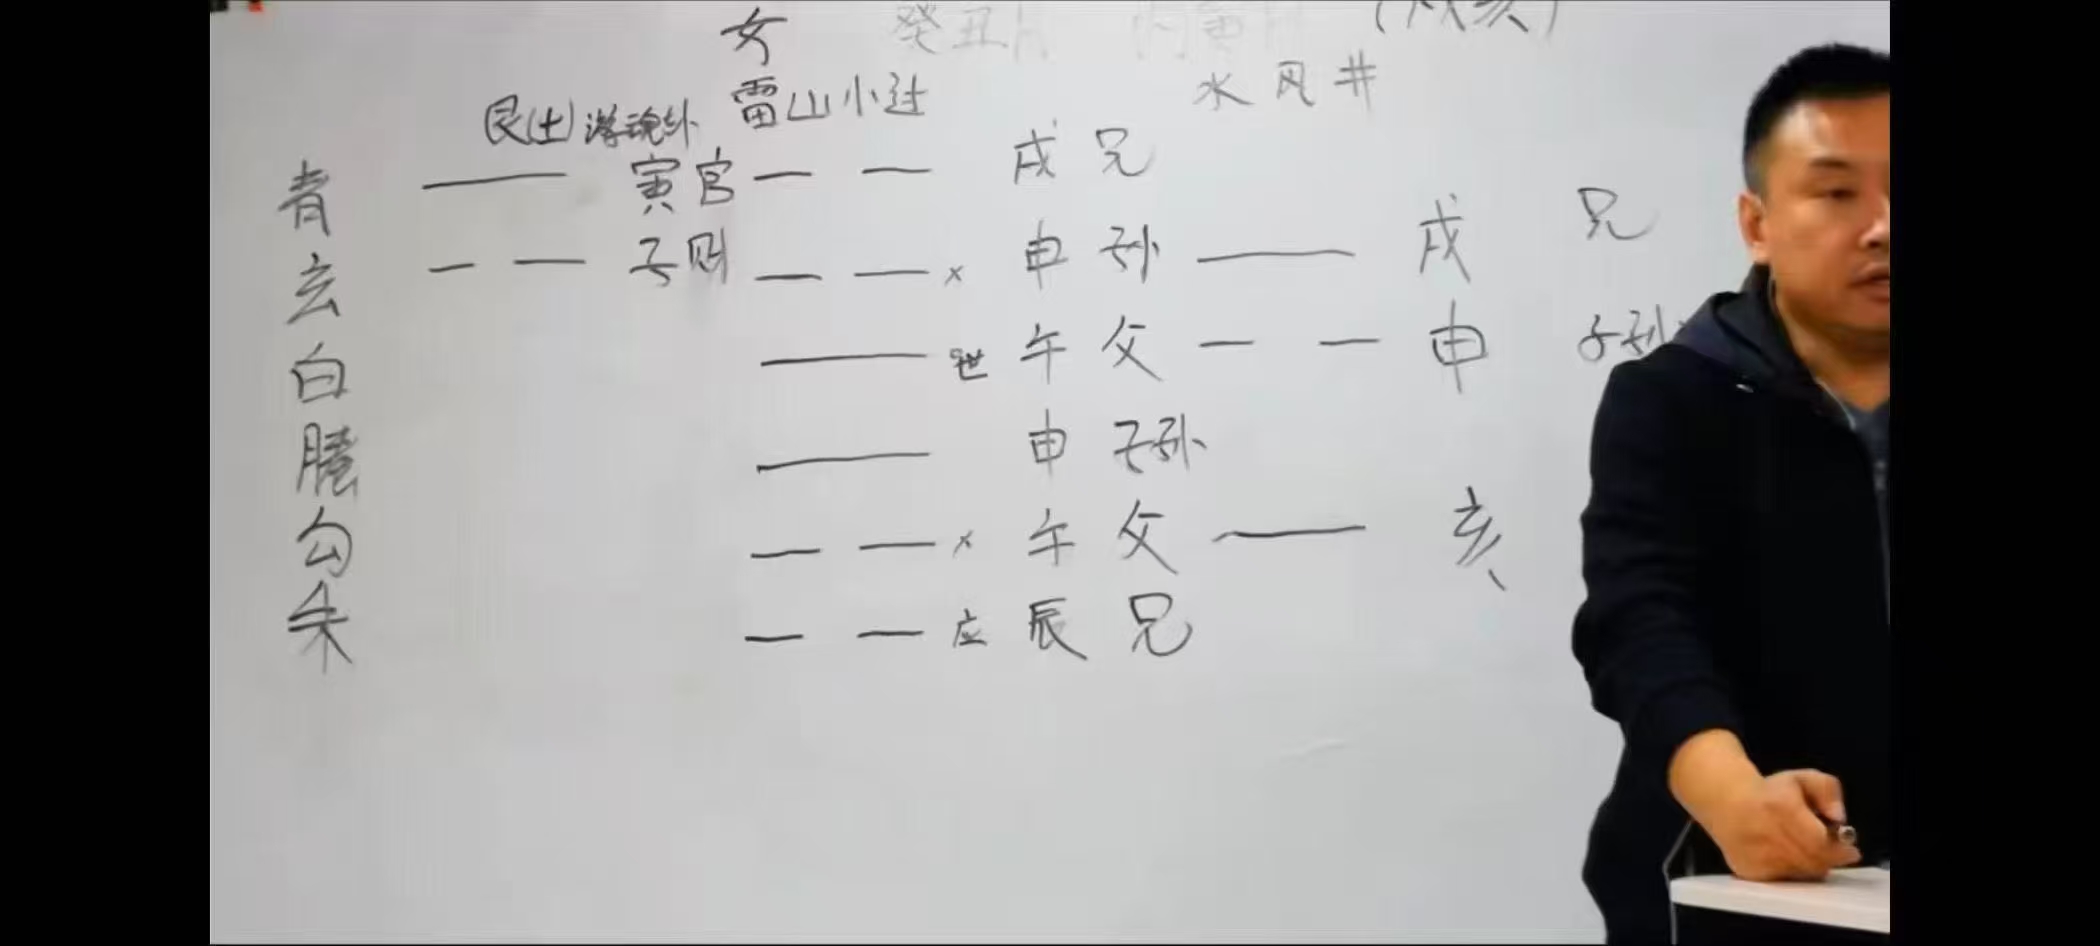 女 癸丑月 丙寅日 (戌亥)
艮(土)游魂卦 雷山小过 水风井
青 寅官 戌兄
玄 子财 × 申子孙 戌 兄
白 世 午父 申 子孙
螣 申子孙
勾 × 午父 亥
朱 应 辰兄